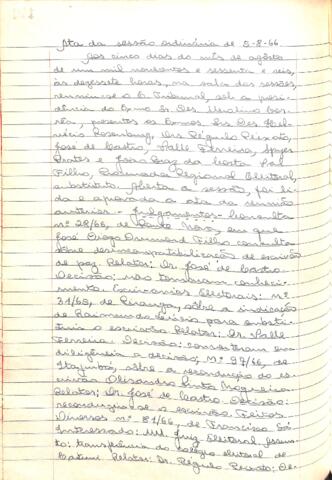 Ata da sessão ordinária de 5-8-66
Aos cinco dias do mês de agosto
de um mil novecentos e sessenta e seis,
às dezessete horas, na sala das sessões,
reuniu-se o E. Tribunal, sob a presi-
dência do Exmo Sr. Des. Merolino Cor-
rêa, presentes os Exmos. Srs. Des. Hel-
vécio Rosenburg, Drs. Régulo Peixoto,
José de Castro, Valle Ferreira,
Prates e João Braz da Costa Val
Filho, Procurador Regional Eleitoral,
substituto. Aberta a sessão, foi li-
da e aprovada a ata da reunião
anterior - Julgamentos - Consulta
nº 28/66, de em que
José Drumond Filho consulta
sobre desincompatibilização de escrivão
de paz. Relator: Dr. José de Castro.
Decisão: não tomaram conheci-
mento. Escrivanias Eleitorais: nº
31/66, de sôbre a indicação
de Raimundo para substi-
tuir o escrivão. Relator: Dr. Valle
Ferreira. Decisão: converteram em
diligência a decisão, Nº 97/66, de
Itajubá, sôbre a recondução do es-
crivão Alexandre Pinto Nogueira.
Relator: Dr. José de Castro. Decisão:
reconduziu-se o escrivão. Feitos
Diversos nº 81/66, de Francisco Sá.
Interessado: MM. Juiz Eleitoral. Assun-
to: transferência do colégio eleitoral de
Catuni. Relator: Dr. Régulo Peixoto. De-